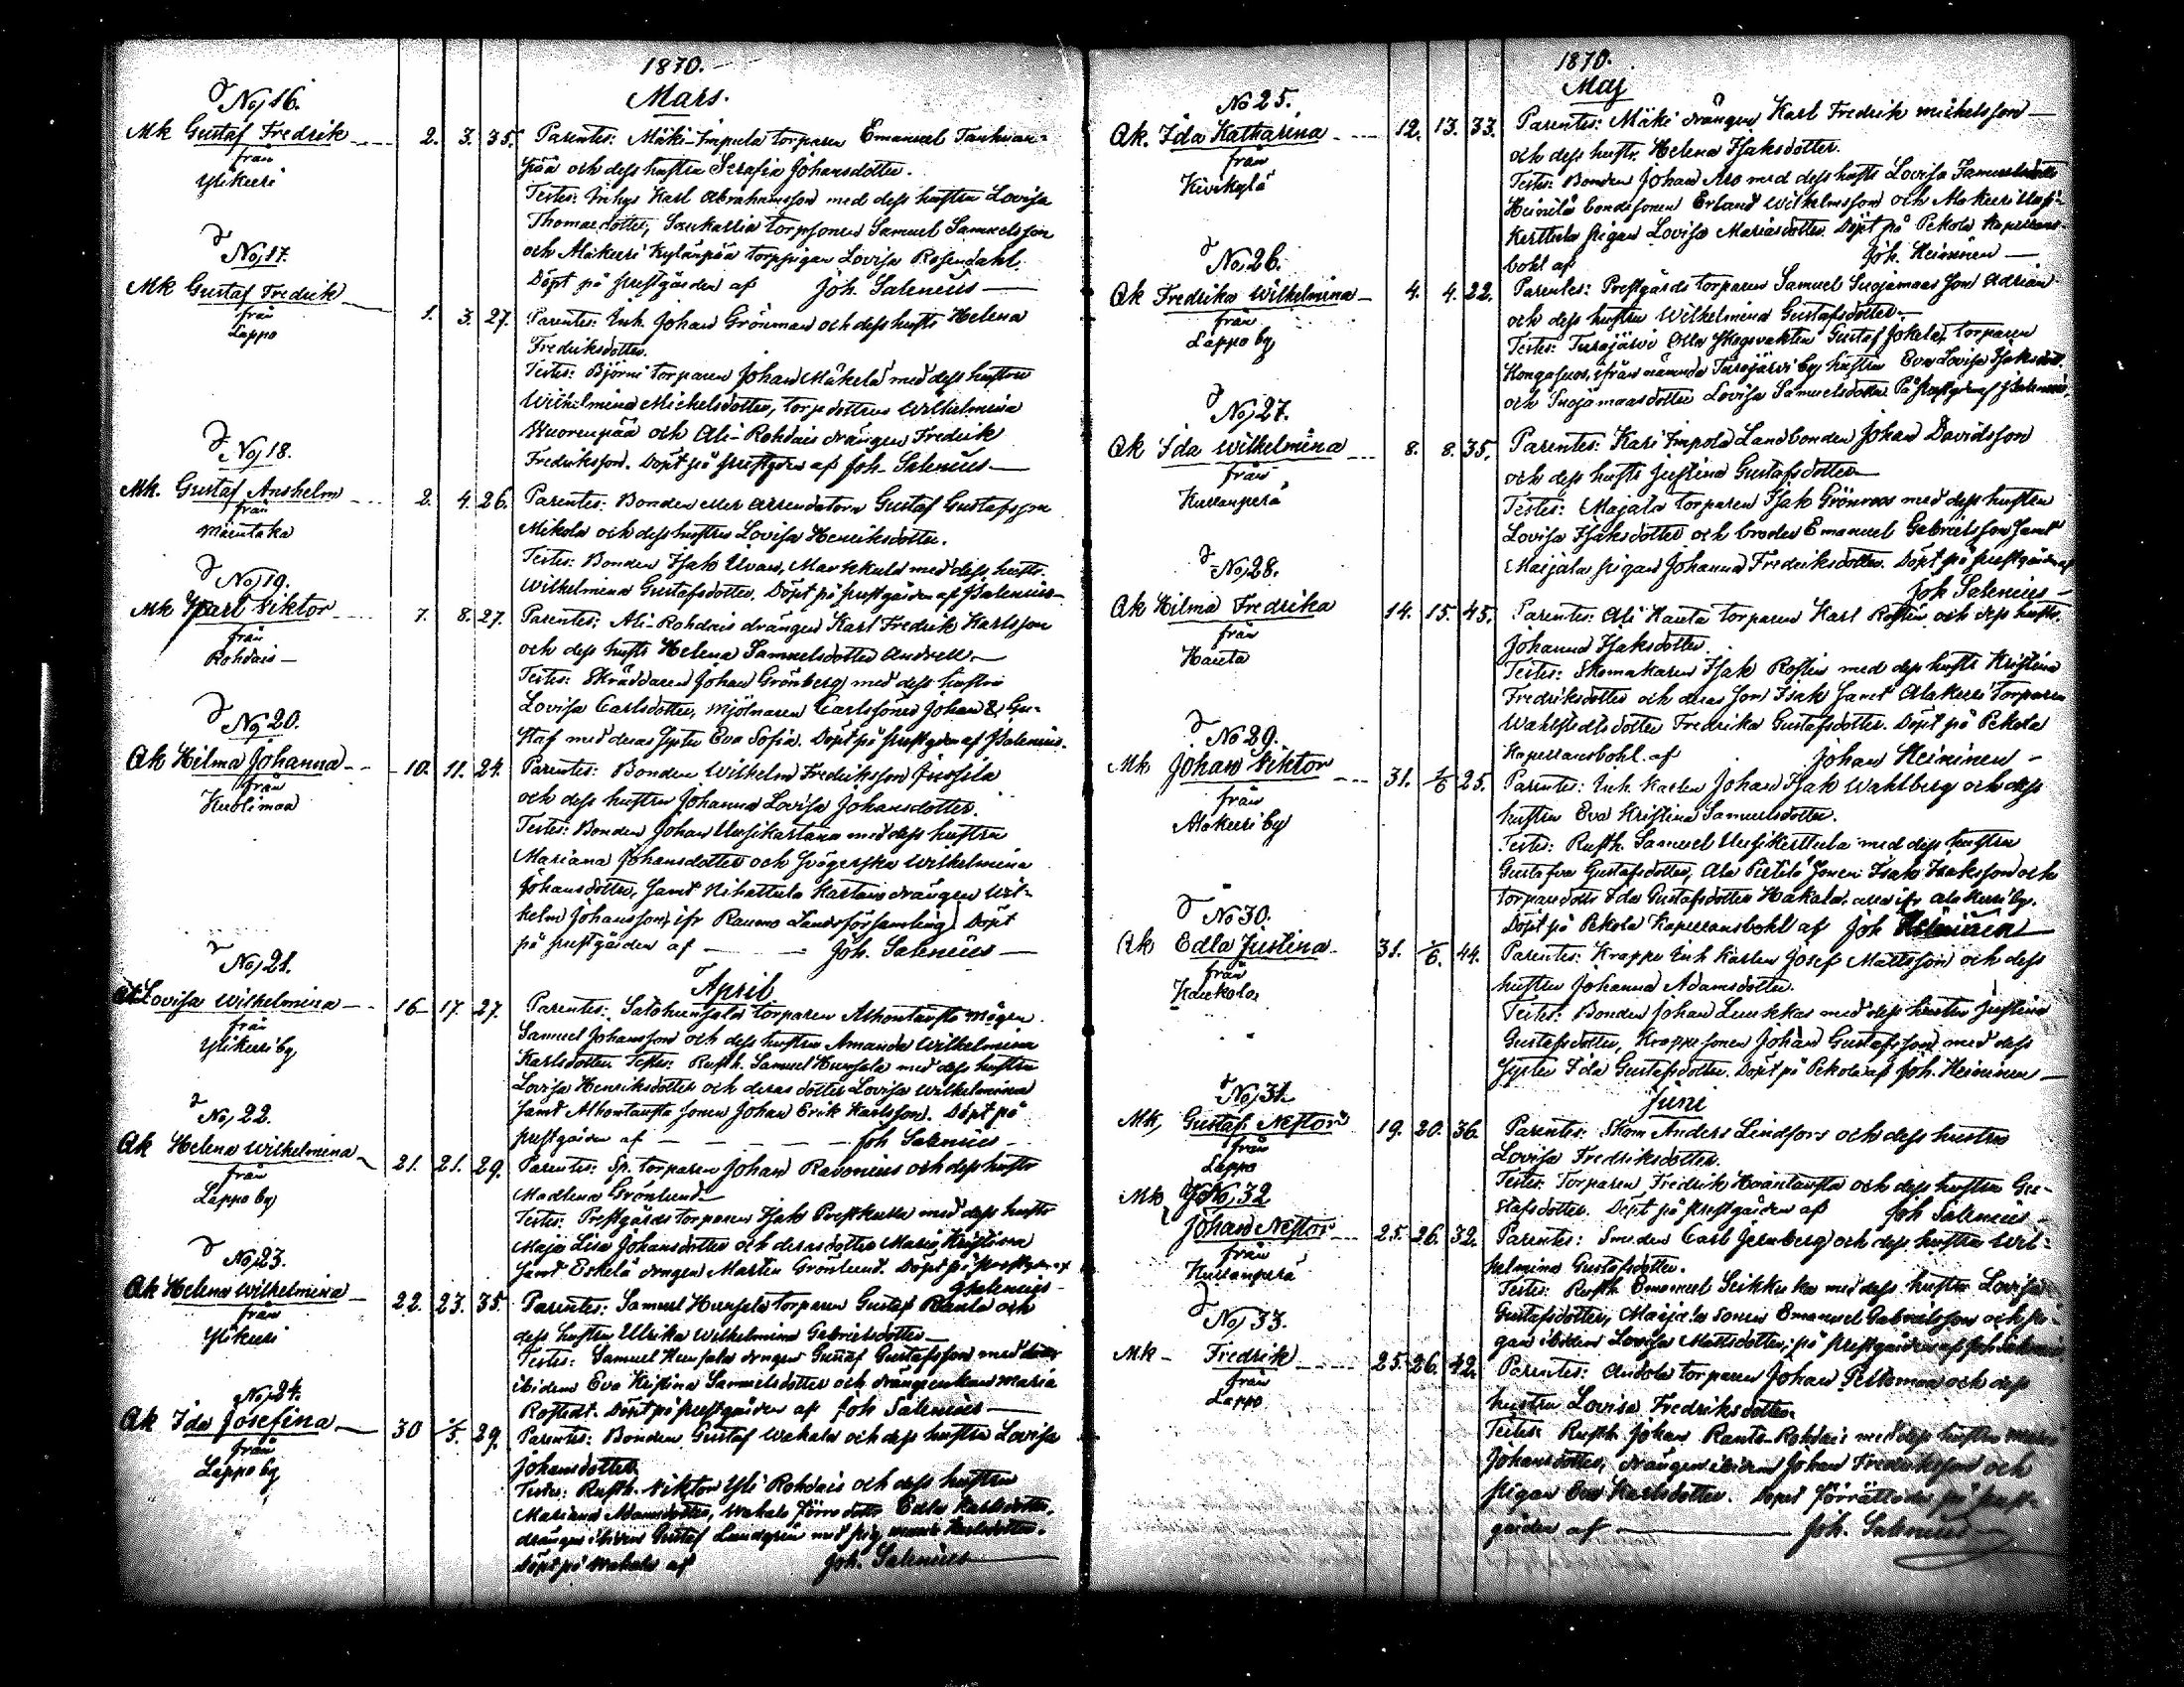 1870.
Mars.
No 16.
Mk Gustaf Fredrik 2. 3. 35.
från
Ylikeri
Parentes: Mäki-Impula torparen Emanuel Tankuan-
pää och dess hustru Serafia Johansdotter.
Testes: Inhys Karl Abrahamsson med dess hustru Lovisa
Thomasdotter, Saukallia torpsonen Samuel Samuelsson
och Alikeri Kylänpää torppigan Lovisa Rosendahl.
Döpt på prestgården af Joh. Salenius
No 17.
Mk Gustaf Fredrik 1. 3. 27.
från
Lappo
Parentes: Inh. Johan Grönman och dess hustr Helena
Fredriksdotter.
Testes: Björni torparen Johan Mäkelä med dess hustru
Wilhelmina Michelsdotter, torpdottren Wilhelmina
Wuorenpää och Ali-Rohdais drängen Fredrik
Fredriksson. Döpt på prestgden af Joh. Salenius
No 18.
Mk. Gustaf Anshelm 2. 4. 26.
från
Mäentaka
Parentes: Bonden eller arrendatorn Gustaf Gustafsson
Mikola och dess hustru Lovisa Henriksdotter.
Testes: Bonden Isak Uvari, Markkula med dess hustr.
Wilhelmina Gustafsdotter. Döpt på prestgården af J Salenius
No 19.
Mk Karl Viktor 7. 8. 27.
från
Rohdais
Parentes: Ali-Rohdais drängen Karl Fredrik Karlsson
och dess hustr Helena Samuelsdotter Andell
Testes: Skräddaren Johan Grönberg med dess hustru
Lovisa Carlsdotter, mjölnaren Carlssöner Johan & Gu-
staf med deras syster Eva Sofia. Döpt på prestgden af J Salenius.
No 20.
Qk Hilma Johanna 10. 11. 24.
från
Kuolimaa
Parentes: Bonden Wilhelm Fredriksson Jussila
och dess hustru Johanna Lovisa Johansdotter.
Testes: Bonden Johan Uusikartano med dess hustru
Mariana Johansdotter och svägerska Wilhelmina
Johansdotter, samt Nihattula Kartano drängen Wil-
helm Johansson, ifr Raumo Landsförsamling. Döpt
på prestgården af Joh. Salenius
April
No 21.
Qk Lovisa Wilhelmina 16 17. 27.
från
Ylikeri by
Samuel Johansson och dess hustru Amanda Wilhelmina
Karlsdotter Testes: Rusth. Samuel Hunsala med dess hustru
Lovisa Henriksdotter och deras dotter Lovisa Wilhelmina
samt Ahontausta sonen Johan Erik Karlsson. Döpt på
prestgården af Joh Salenius
No 22.
Qk Helena Wilhelmina 21. 21. 29.
från
Lappo by
Parentes: Sp. torparen Johan Ravonius och dess hustr
Madlena Grönlund
Testes: Prestgårds torparen Isak Prestkulla med dess hustr
Maja Lisa Johansdotter och deras dotter Maria Kristina
samt Eskelä drengen Martin Grönlund. Döpt på prestgden af
J Salenius
No 23.
Qk Helena Wilhelmina 22. 23. 35.
från
Ylikeri
Parentes: Samuel Hunsala torparen Gustaf Ranta och
dess hustru Ulrika Wilhelmina Gabrielsdotter
Testes: Samuel Hunsala drengen Gustaf Gustafsson med
ibidem Eva Kristina Samuelsdotter och drängenkan Maria
Rostedt. Döpt på prestgården af Joh Salenius
No 24.
Qk Ida Josefina 30 1/5. 29.
från
Lappo by
Parentes: Bonden Gustaf Wakala och dess hustru Lovisa
Johansdotter
Testes: Rusth. Viktor Yli Rohdais och dess hustru
Mariana Adamsdotter, Wakala Edla Karlsdotter,
drängen ibidem Gustaf Lundgren med
Döpt på Wakala af Joh. Salenius
1870.
Maj
No 25.
Qk. Ida Katharina 12. 13. 33.
från
Kivikylä
Parentes: Mäki drängen Karl Fredrik Michelsson
och dess hustr. Helena Isaksdotter.
Testes: Bonden Johan Aro med dess hustr Lovisa Samuelsdotter
Heinilä bondesonen Erland Wilhelmsson och Alakeri Uusi-
Kerttula pigan Lovisa Mariasdotter. Döpt på Pekola Kapellans-
bohl af Joh. Heininen
No 26.
Qk Fredrika Wilhelmina 4. 4. 22.
från
Lappo by
Parentes: Prestgårds torparen Samuel Suojamaas son Adrian
och dess hustru Wilhelmina Gustafsdotter
Testes: Turajärvi Olla Skogsvakten Gustaf Jokela, torparen
Kongasuo, ifrån nämnda Turajärvi by hustrun Eva Lovisa Isaksdott.
och Suojamaasdotter Lovisa Samuelsdotter. På prestgden af J Salenius.
No 27.
Qk Ida Wilhelmina 8. 8. 35.
från
Kullanperä
Parentes: Kari Impola Landbonden Johan Davidsson
och dess hustr Justina Gustafsdotter
Testes: Majala torparen Isak Grönroos med dess hustru
Lovisa Isaksdotter och brodren Emanuel Gabrielsson samt
Maijala pigan Johanna Fredriksdotter. Döpt på prestgården af
Joh Salenius
No 28.
Qk Hilma Fredrika 14. 15. 45.
från
Hauta
Parentes: Ali Hauta torparen Karl Rostin och dess hustr.
Johanna Isaksdotter.
Testes: Skomakaren Isak Rostin med dess hustr Kristina
Fredriksdotter och deras son Isak samt Alakeri Torparen
Wahlstedts dotter Fredrika Gustafsdotter. Döpt på Pekola
Kapellansbohl af Johan Heininen
No 29.
Mk Johan Viktor 31. 1/6 25.
från
Alakeri by
Parentes: Inh. karlen Johan Isak Wahlberg och dess
hustru Eva Kristina Samuelsdotter.
Testes: Rusth. Samuel Uusikerttula med dess hustru
Gustafva Gustafsdotter, Ala Pietilä sonen Isak Isaksson och
torparedottr Ida Gustafsdotter Hakala, alla ifr Alakeri by.
Döpt på Pekola Kapellansbohl af Joh Heininen
No 30.
Qk Edla Justina 31. 1/6. 44.
från
Kaukola
Parentes: Krappe Inh karlen Josef Mattsson och dess
hustru Johanna Adamsdotter.
Testes: Bonden Johan Luukkas med dess hustru Justina
Gustafsdotter, Krappe sonen Johan Gustafsson med dess
syster Ida Gustafsdotter. Döpt på Pekola af Joh. Heininen
Juni
No 31.
Mk Gustaf Nestor 19. 20. 36.
från
Lappo
Parentes: Skom Anders Lindfors och dess hustru
Lovisa Fredriksdotter.
Testes: Torparen Fredrik Koivutausta och dess hustru Gu-
stafsdotter. Döpt på prestgården af Joh Salenius
No 32
Mk Johan Nestor 25. 26. 32.
från
Kullanperä
Parentes: Smeden Carl Jernberg och dess hustru Wil-
helmina Gustafsdotter.
Testes: Rusth. Emanuel Seikkula med dess hustru Lovisa
Gustafsdotter, Maijala sonen Emanuel Gabrielsson och pi-
gan ibidem Lovisa Mattsdotter, på prestgården af Joh Salenius
No 33.
Mk Fredrik 25. 26. 42.
från
Lappo
Parentes: Andola torparen Johan Peltomaa och dess
hustru Lovisa Fredriksdotter
Testes: Rusth. Johan Ranta-Rohdais med dess hustru
Johansdotter, drängen ibidem Johan Fredriksson och
pigan Eva Karlsdotter. Dopet förrättades på prest-
gården af Joh. Salenius